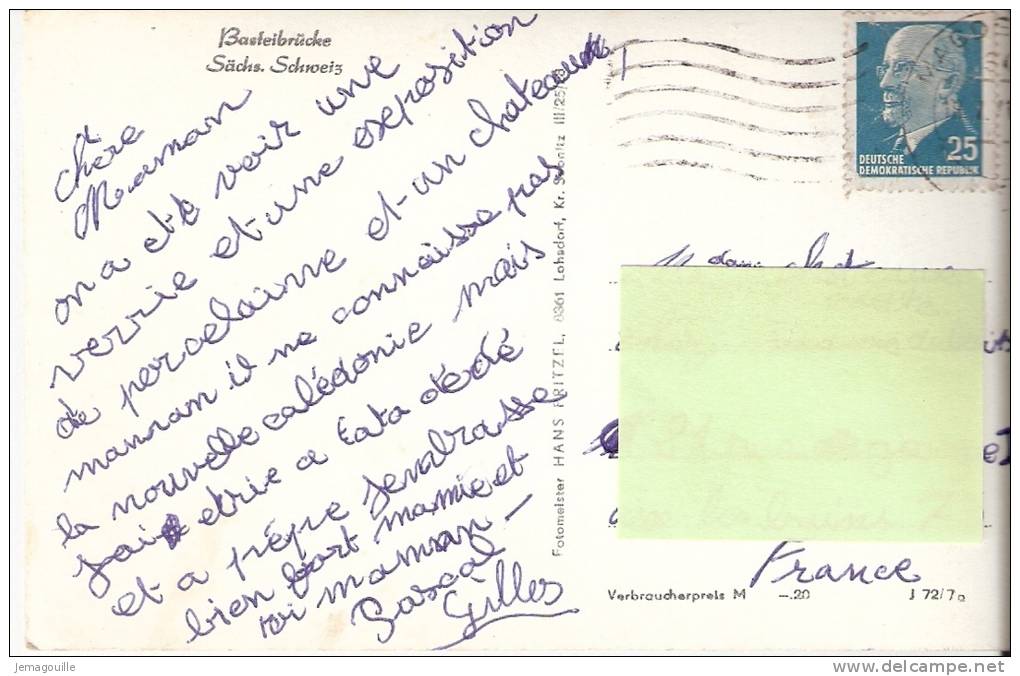 Basteibrücke
Sächs. Schweiz
Chère
Maman
on a etè voir une
verrie et une exposition
de porcelainne et un chateau
maman il ne connaisse pas
la nouvelle calédonie mais
jai ecrie a tata dédé
et a pépre jembrasse
bien fort mamie et
toi maman -
Pascal
Gilles
Fotomeister HANS PRITZEL, 8361 Lohsdorf, Kr. Sebnitz III/25/13
25
DEUTSCHE
DEMOKRATISCHE REPUBLIK
France
Verbraucherpreis M -.20 J 72/70
Jemagouille
www.delcampe.net